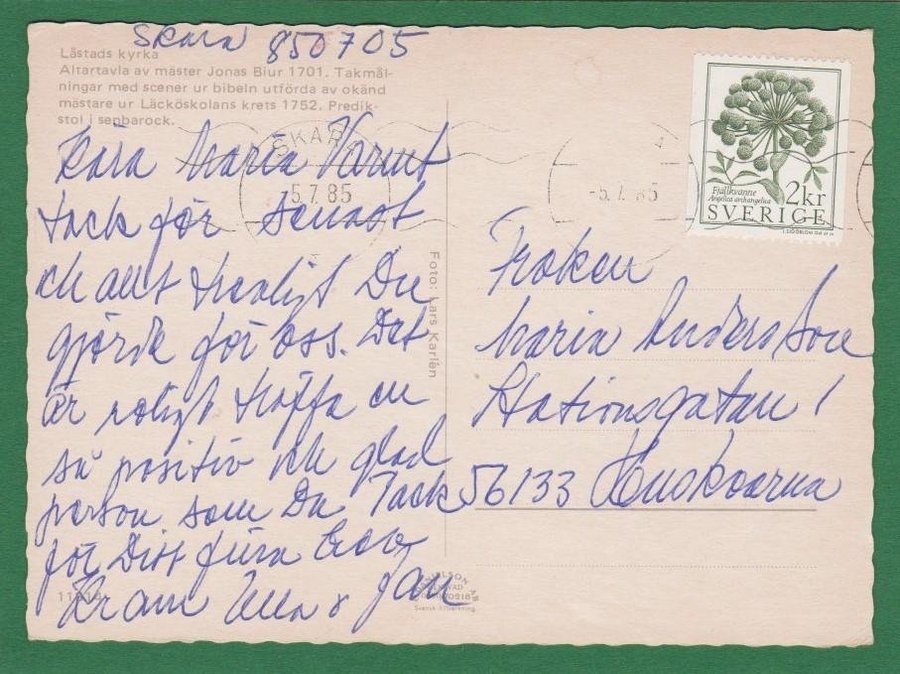 Skara 850705
Låstads kyrka
Altartavla av mäster Jonas Biur 1701. Takmål-
ningar med scener ur bibeln utförda av okänd
mästare ur Läcköskolans krets 1752. Predik-
stol i senbarock.
Kära Maria Varmt
tack för senast
och allt trevligt Du
gjörde för oss. Det
är roligt träffa en
så positiv och glad
person som Du Tack
för Ditt fina
Kram Ulla & Jan
SKARA
-5.7.85
-5.7.85
Fjällkvanne
Angelica archangelica
2kr
SVERIGE
Foto: Lars Karlén
Fröken
Maria Andersson
Stationsgatan 1
56133 Huskvarna